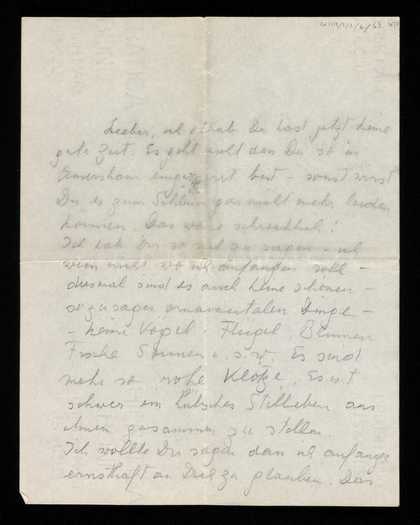 Lieber, ich glaub Du hast jetzt keine
gute Zeit. Es geht nicht dass Du so in
eingesperrt bist – sonst wirst
Du es zum Schluss gar nicht mehr
können. Das wäre schrecklich!
Ich hab Dir so viel zu sagen – ich
weiss nicht wo ich anfangen soll –
diesmal sind es auch keine schönen –
sozusagen ornamentalen Dinge –
– keine Vögel Flügel Blumen
Fische Sonnen u.s.w. Es sind
mehr so rohe Klötze. Es ist
schwer ein hübsches Stilleben aus
ihnen zusammen zu stellen.
Ich wollte Dir sagen dass ich anfange
ernsthaft an Dich zu glauben. Das